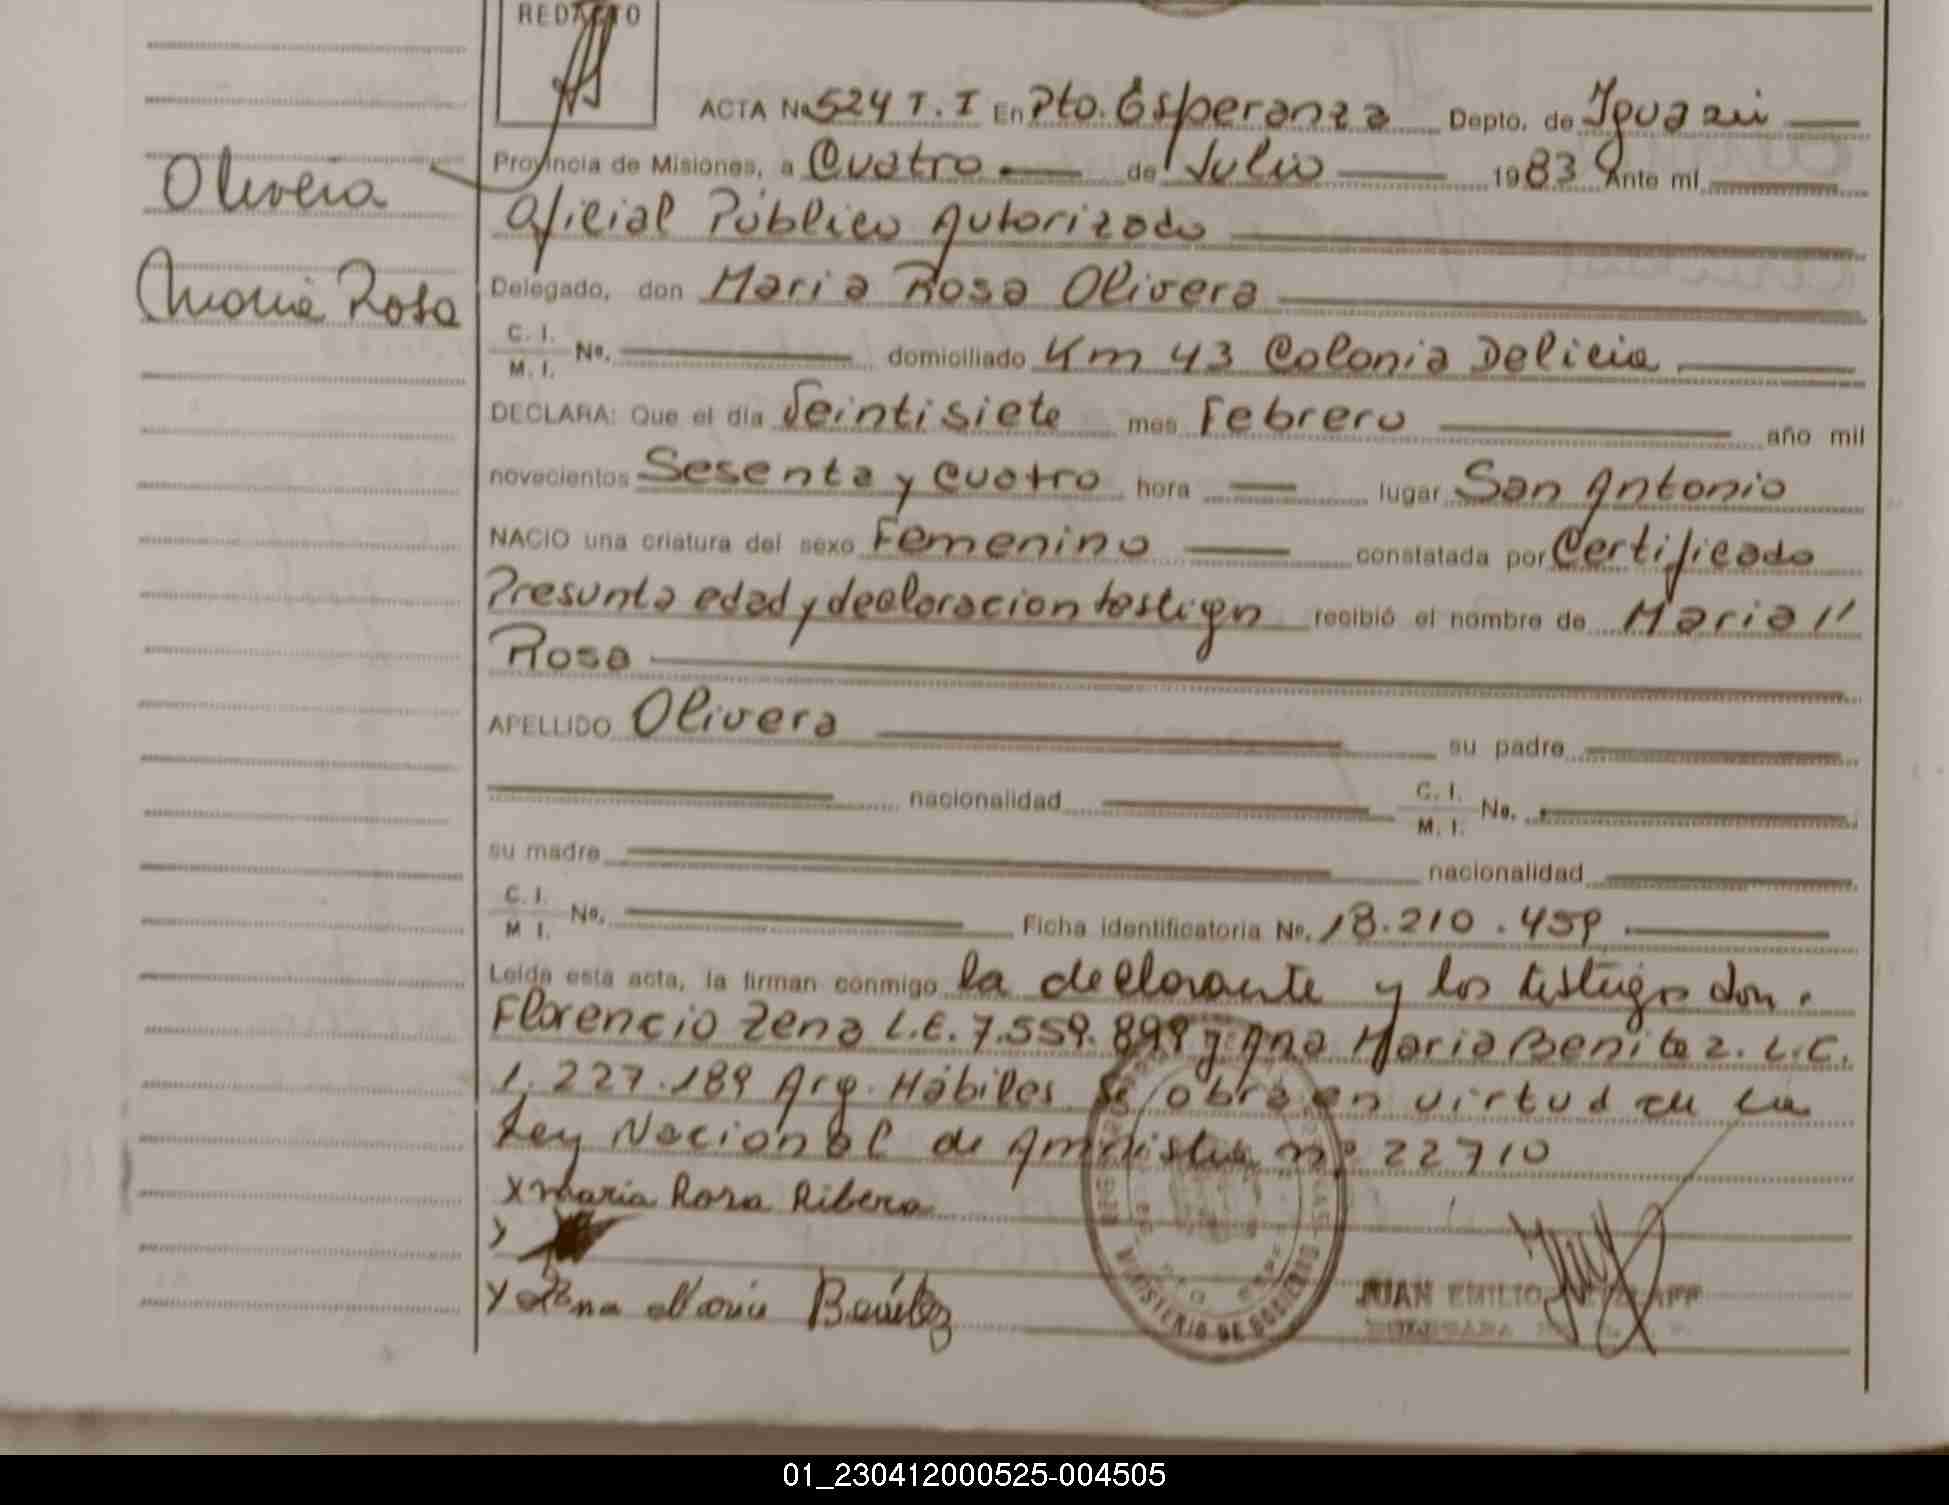 REDACTO
ACTA No 524 T. I En Pto. Esperanza Depto. de Iguazú
Provincia de Misiones, a Cuatro de Julio 1983 Ante mí
Olivera
Oficial Público Autorizado
María Rosa
Delegado, don Maria Rosa Olivera
C. I.
M. I. No. domiciliado Km 43 Colonia Delicia
DECLARA: Que el día Veintisiete mes Febrero año mil
novecientos Sesenta y Cuatro hora lugar San Antonio
NACIO una criatura del sexo Femenino constatada por Certificado
Presunta edad y declaracion testign recibió el nombre de Maria //
Rosa
APELLIDO Olivera su padre
nacionalidad C. I.
M. I. No.
su madre nacionalidad
C. I.
M I. No. Ficha identificatoria No. 18.210.459
Leída esta acta, la firman conmigo la declarante y los testigos don.
Florencio Zena L.E. 7.559.899 y Ana Maria Benitez. L.C.
1.227.189 Arg. Hábiles Se obra en virtud de la
Ley Nacional de Amnistia nº 22710
x maria Rosa Ribera
x Ana Maria Benítez
MINISTERIO DE GOBIERNO
JUAN EMILIO
01_230412000525-004505